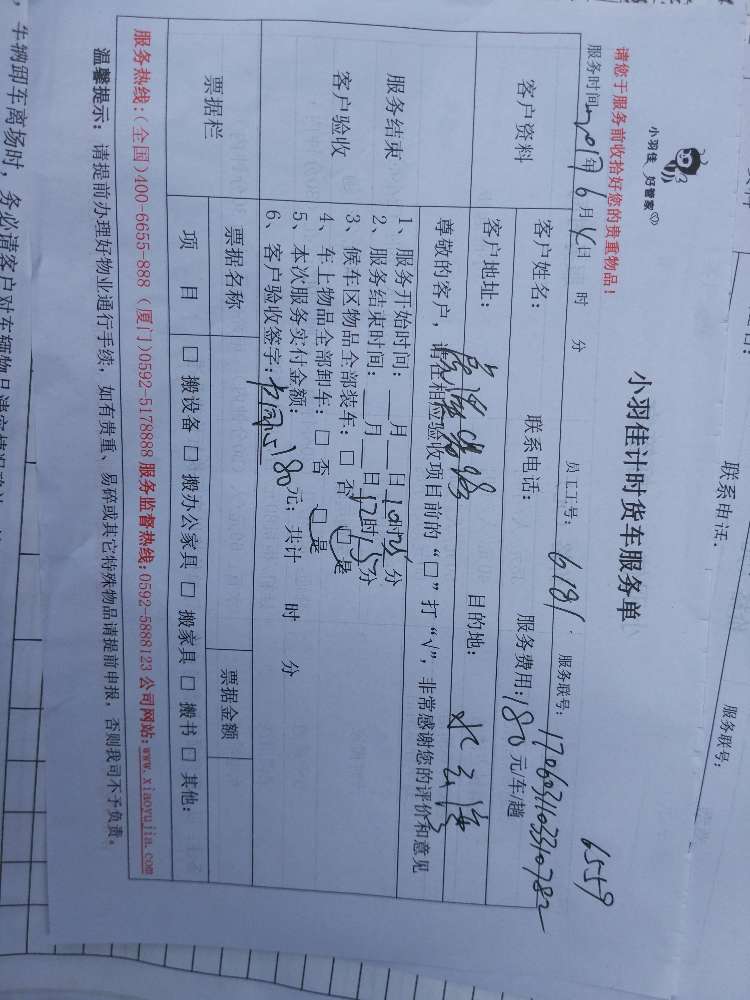 小羽佳 好管家
小羽佳计时货车服务单
6559
请您于服务前收拾好您的贵重物品！
服务时间：2017年6月4日 时 分 员工工号：6181 服务联号：1706031103310782
客户资料
客户姓名： 联系电话： 服务费用：180元/车/趟
客户地址： 目的地：
尊敬的客户，请在相应验收项目前的“□”打“√”，非常感谢您的评价和意见
服务结束
客户验收
1、服务开始时间：__月__日10时25分
2、服务结束时间：__月__日12时15分
3、候车区物品全部装车：□ 否 □ 是
4、车上物品全部卸车：□ 否 □ 是
5、本次服务实付金额：180元；共计 时 分
6、客户验收签字：
票据栏
票据名称 票据金额
项 目 □ 搬设备 □ 搬办公家具 □ 搬家具 □ 搬书 □ 其他：
服务热线：（全国）400-6655-888（厦门）0592-5178888 服务监督热线：0592-5888123 公司网站：www.xiaoyujia.com
温馨提示：请提前办理好物业通行手续，如有贵重、易碎或其它特殊物品请提前申报，否则我司不予负责。
联系电话：
服务联号：
车辆卸车离场时，务必请客户对车辆物品清空情况确认